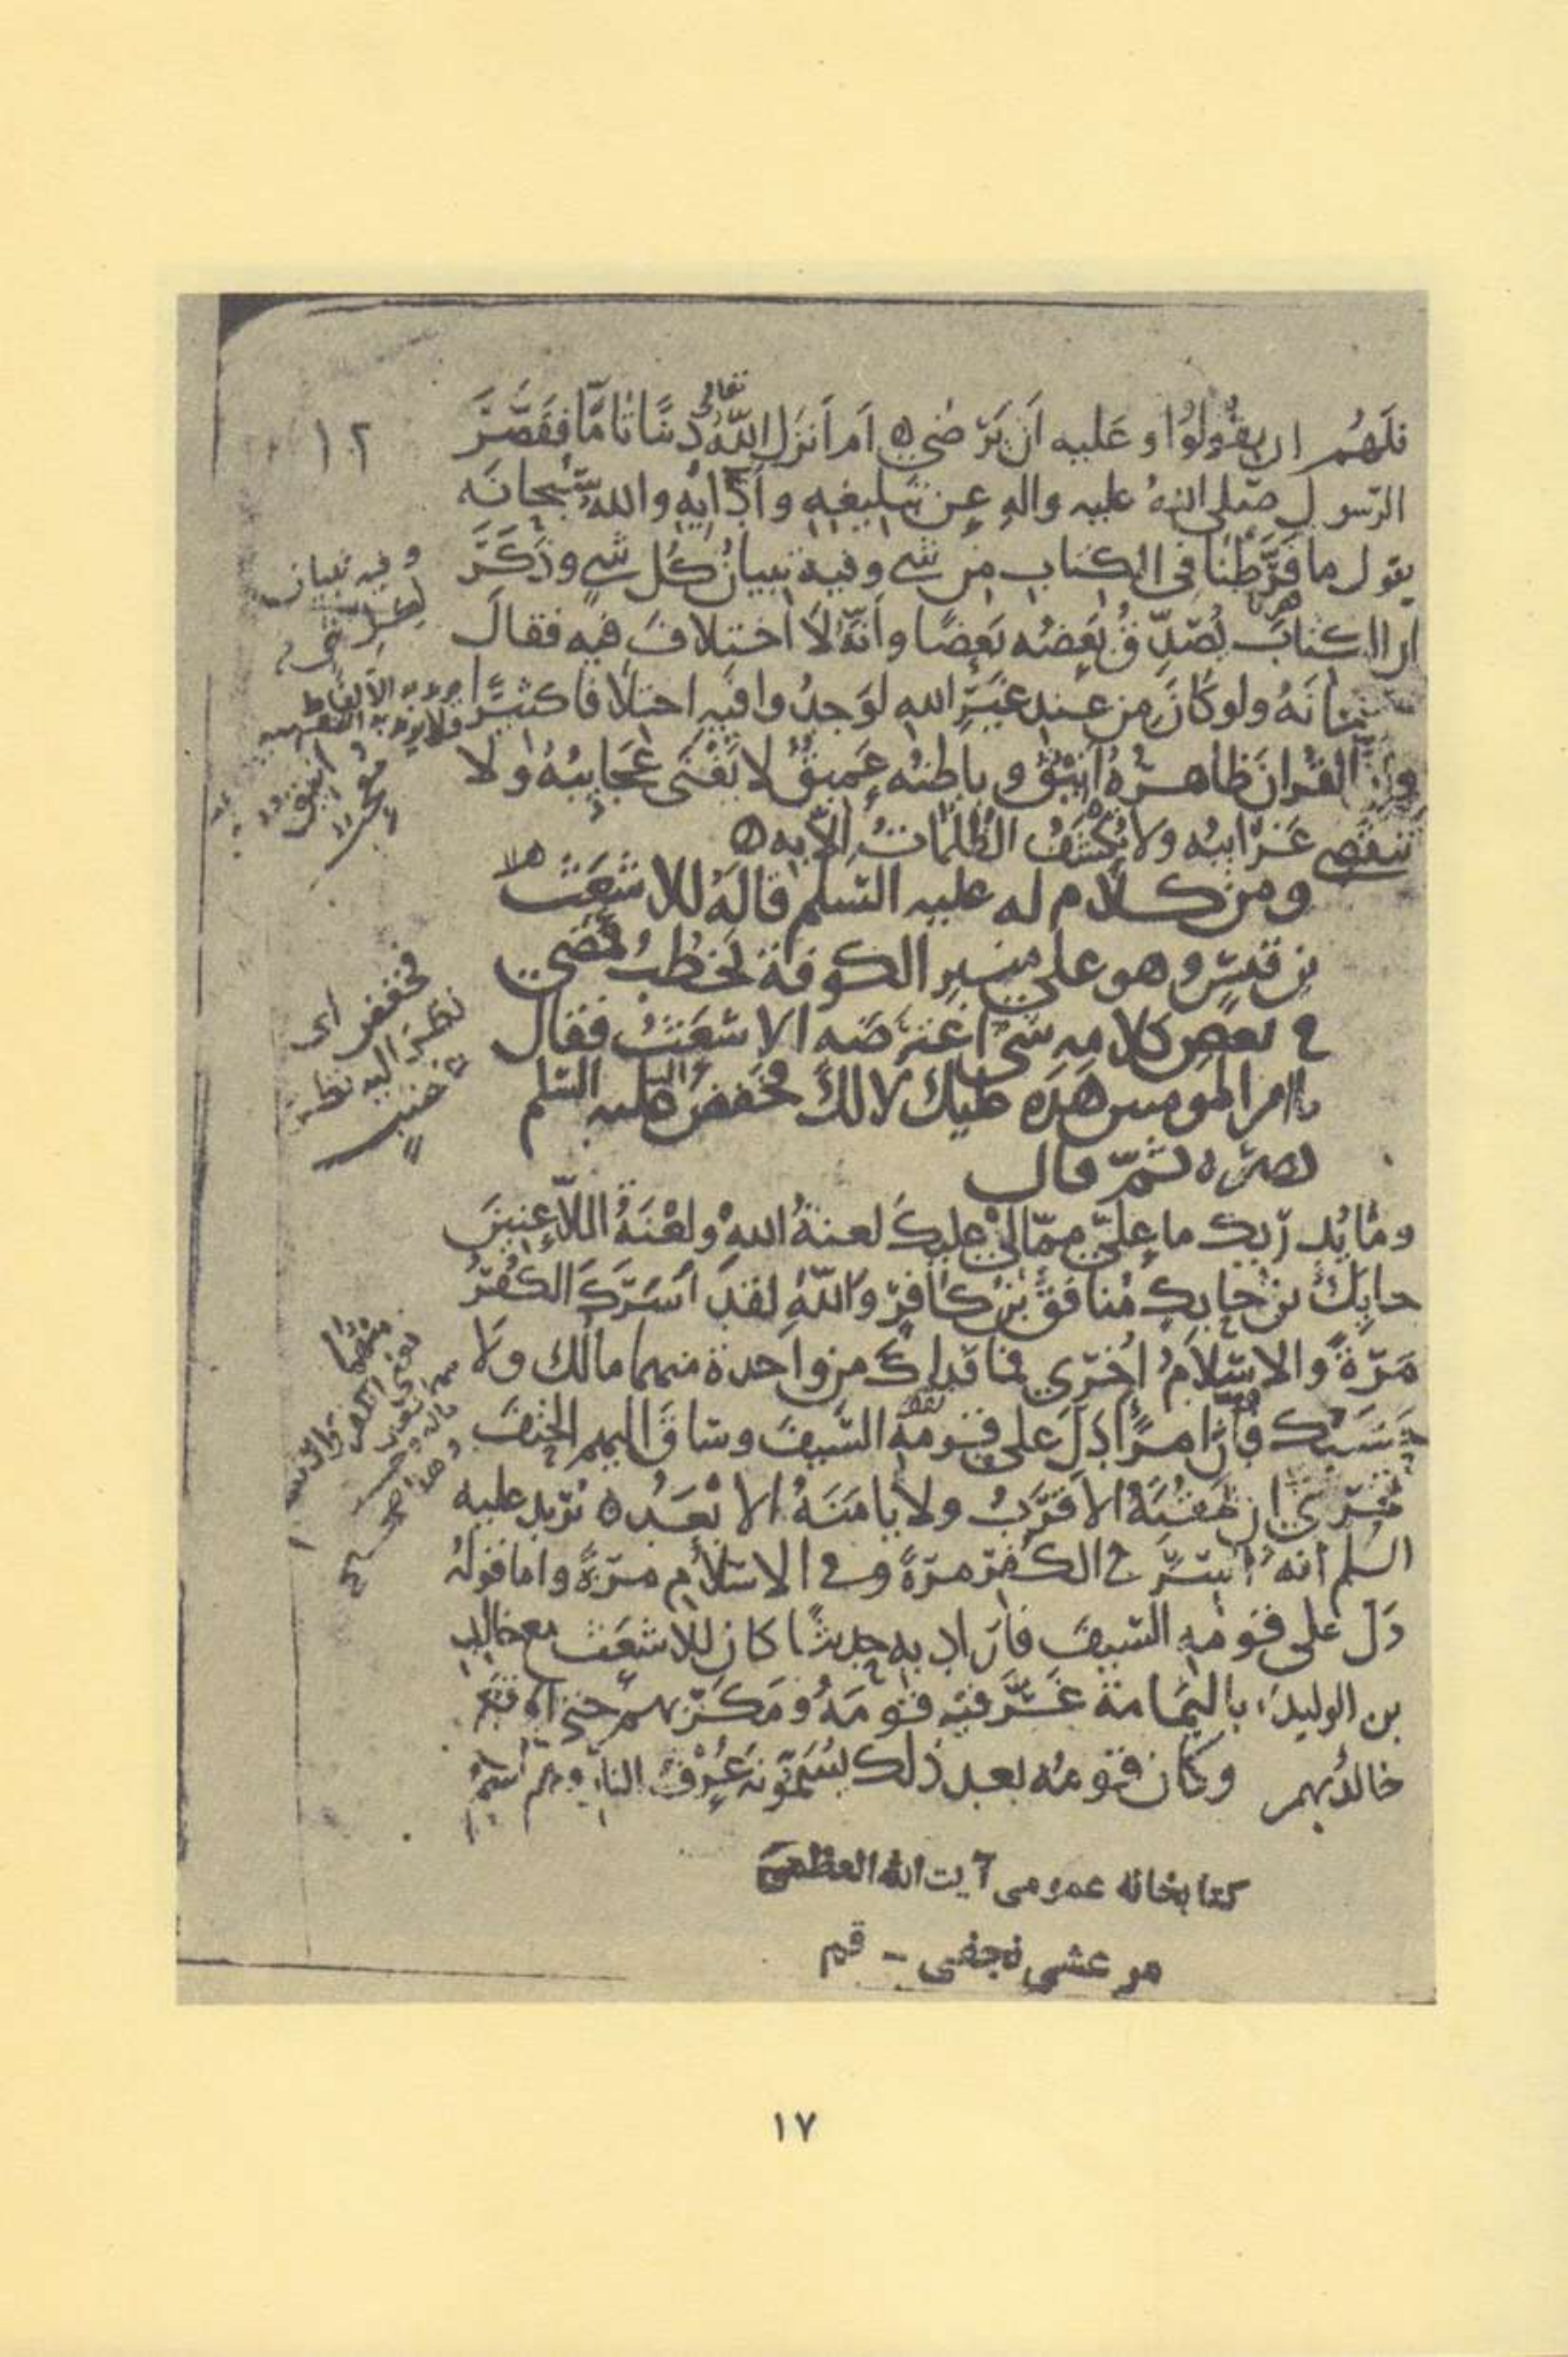 ١٢
فلهم ان يقولوا وعليه ان يرضى ام انزل الله تعالى دينا تاما فقصّر
الرسول صلى الله عليه واله عن تبليغه وادايه والله سبحانه
يقول ما فرّطنا فى الكتاب من شى وفيه تبيان كل شى وذكر
ان الكتاب يصدّق بعضه بعضا وانه لا اختلاف فيه فقال
سبحانه ولو كان من عند غير الله لوجدوا فيه اختلافا كثيرا
وان القران ظاهره انيق وباطنه عميق لا تفنى عجايبه ولا
تنقضى غرايبه ولا تكشف الظلمات الا به
ومن كلام له عليه السلم قاله للاشعث
بن قيس وهو على منبر الكوفة يخطب فمضى
فى بعض كلامه شى اعترضه الاشعث فقال
يا امير المومنين هذه عليك لا لك فخفض عليه السلم
اليه بصره ثمّ قال
وما يدريك ما علىّ ممّا لى عليك لعنة الله ولعنة اللاعنين
حايك بن حايك منافق بن كافر والله لقد اسرك الكفر
مرّة والاسلام اخرى فما فداك من واحدة منهما مالك ولا
حسبك وان امرا دلّ على قومه السيف وساق اليهم الحتف
لحرى ان يمقته الاقرب ولا يامنه الابعد يريد عليه
السلم انه اسر فى الكفر مرّة وفى الاسلام مرّة واما قوله
دلّ على قومه السيف فاراد به حديثا كان للاشعث مع خالد
بن الوليد باليمامة غرّ فيه قومه ومكر بهم حتى اوقع
خالد بهم وكان قومه بعد ذلك يسمّونه عرف النار وهم اسم
وفيه تبيان
لكل شى
الالفاظ
انيق
معجب
فخفض اى
نظر اليه نظر
كتابخانه عمومى آيت الله العظمى
مرعشى نجفى - قم
١٧